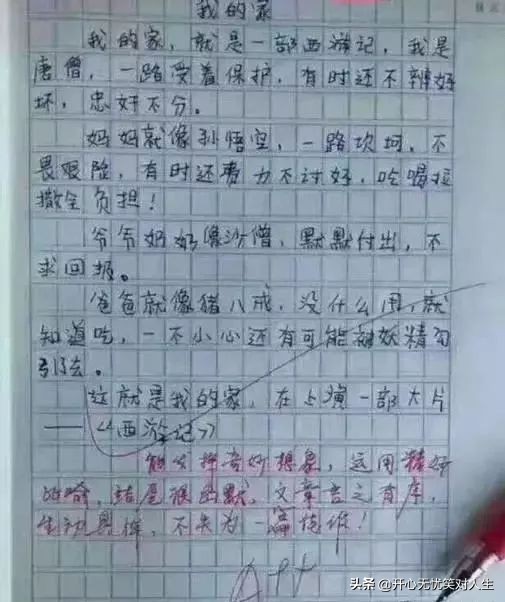 我的家
我的家，就是一部西游记，我是
唐僧，一路受着保护，有时还不辨好
坏，忠奸不分。
妈妈就像孙悟空，一路坎坷，不
畏艰险，有时还费力不讨好，吃喝拉
撒全负担！
爷爷奶奶像沙僧，默默付出，不
求回报。
爸爸就像猪八戒，没什么用，就
知道吃，一不小心还有可能被妖精勾
引去。
这就是我的家，在上演一部大片
——《西游记》
能发挥奇妙想象，运用精妙
的喻，结尾很幽默，文章言之有序，
生动具体，不失为一篇佳作！
A++
头条 @开心无忧笑对人生